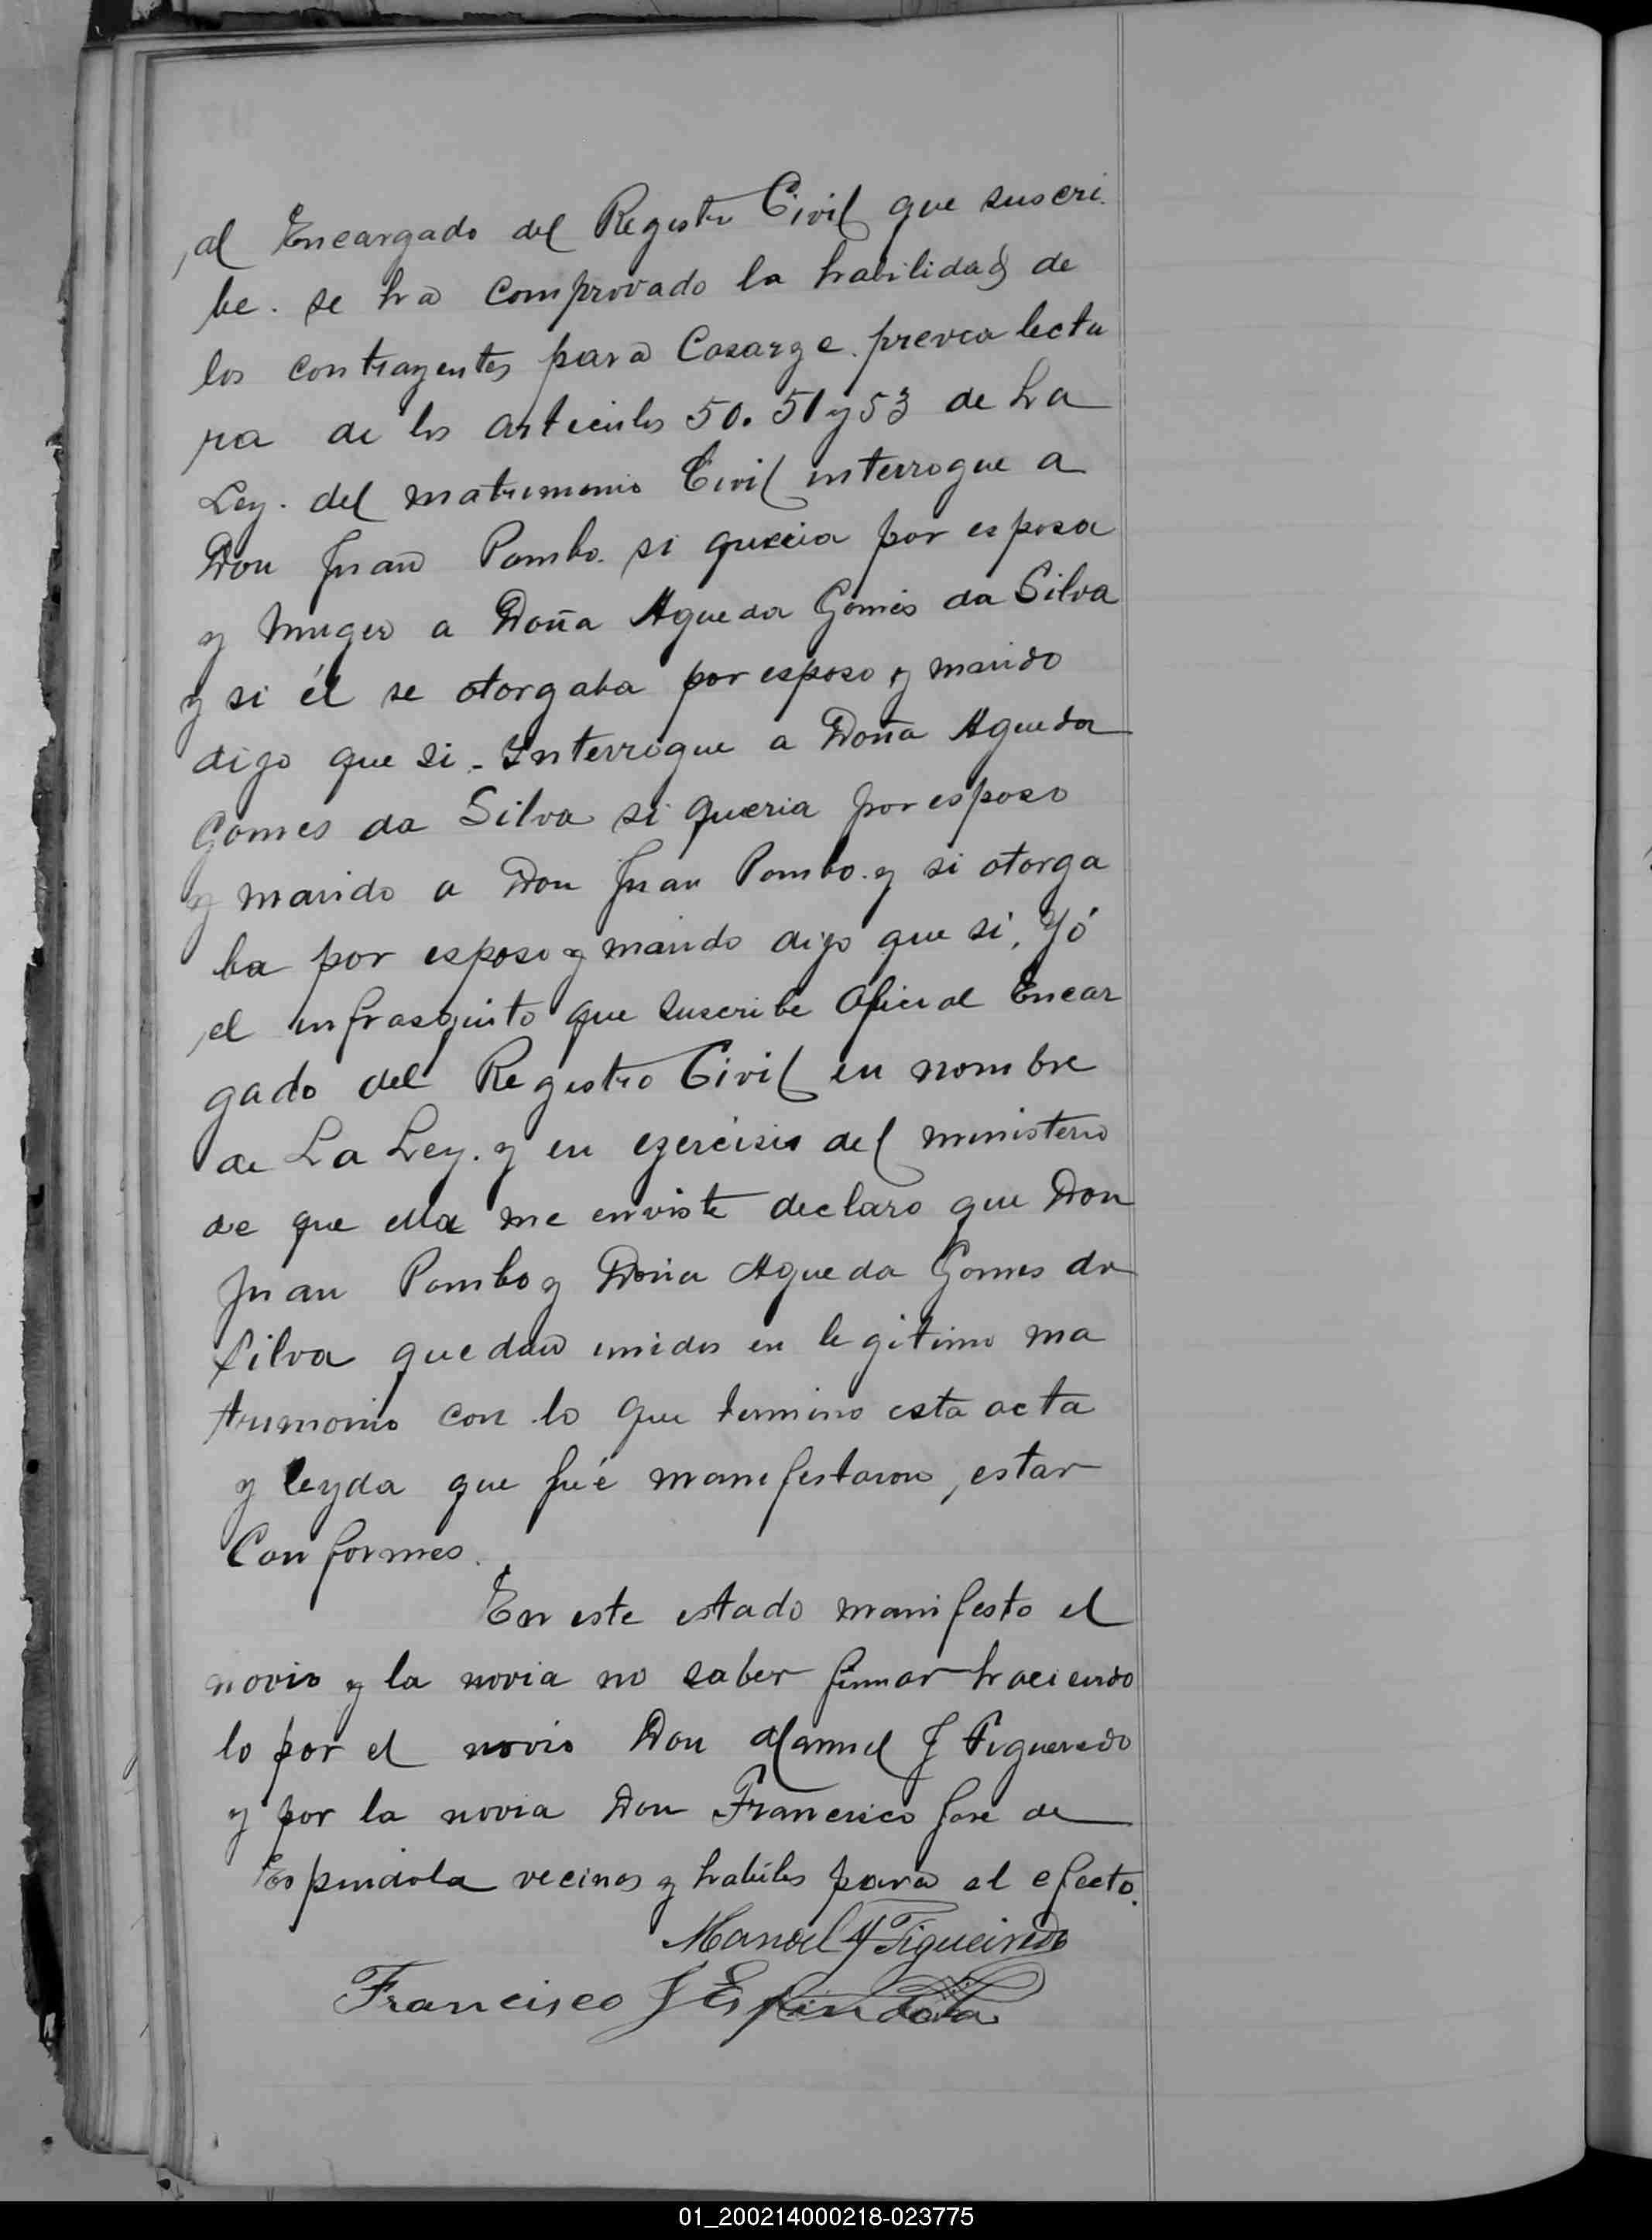 al Encargado del Registro Civil que suscri
be. se ha comprovado la habilidad de
los contrayentes para Casarze. previa lectu
ra de los articulos 50. 51 y 53 de La
Ley. del matrimonio Civil interrogue a
Don Juan Pombo. si queria por esposa
y muger a Doña Agueda Gomes da Silva
y si él se otorgaba por esposo y marido
digo que si - Interrogue a Doña Agueda
Gomes da Silva si queria por esposo
y marido a Don Juan Pombo. y si otorga
ba por esposo y marido digo que si. Yó
el infrasquito que suscribe Oficial Encar
gado del Registro Civil en nombre
de La Ley. y en egercisio del ministerio
de que ella me enviste declaro que Don
Juan Pombo y Doña Agueda Gomes da
Silva quedan unidos en legitimo ma
trimonio con lo que termino esta acta
y leyda que fué manifestaron, estar
Conformes.
En este estado manifesto el
novio y la novia no saber firmar haciendo
lo por el novio Don Manuel J Figueredo
y por la novia Don Francisco Jose de
Espindola vecinos y habiles para el efecto.
Manoel J Figueiredo
Francisco J Espindola
01_200214000218-023775